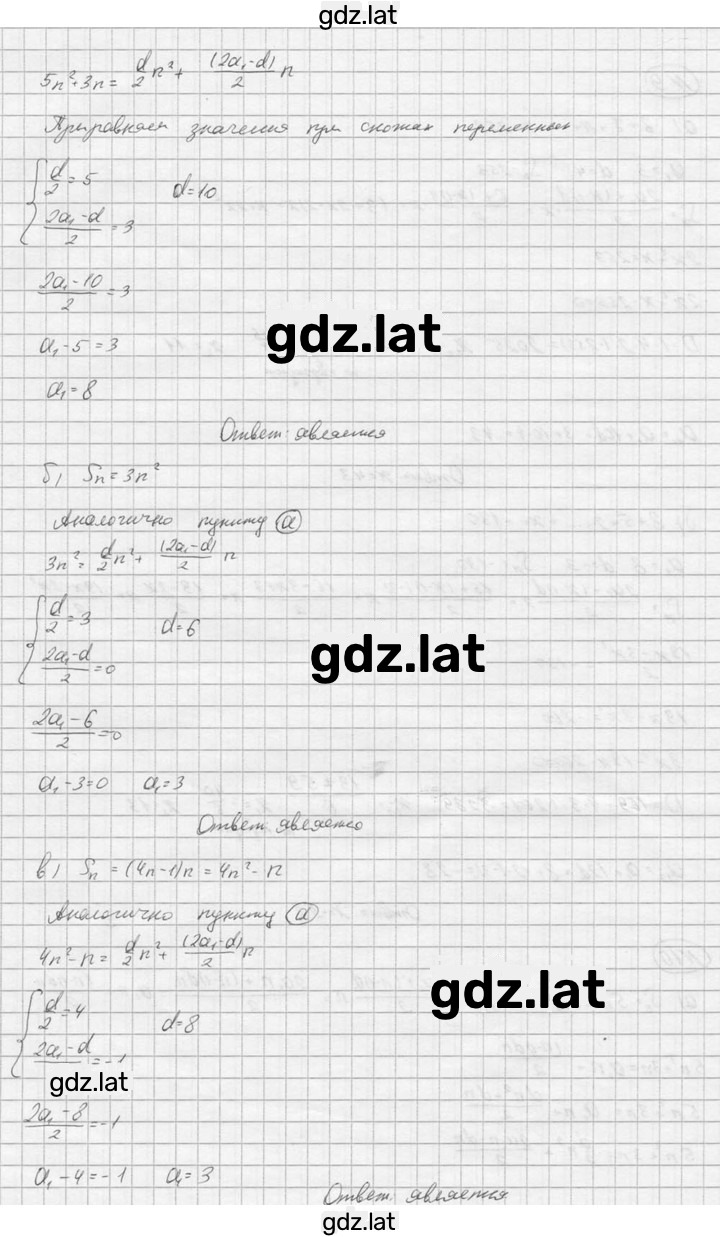 gdz.lat
5n²+3n = d/2 n² + (2a₁-d)/2 n
Приравняем значения при схожих переменных
{ d/2 = 5    d=10
{ (2a₁-d)/2 = 3
(2a₁-10)/2 = 3
gdz.lat
a₁-5=3
a₁=8
Ответ: является
б) Sn=3n²
Аналогично пункту а
3n² = d/2 n² + (2a₁-d)/2 n
{ d/2 = 3    d=6
{ (2a₁-d)/2 = 0
gdz.lat
(2a₁-6)/2 = 0
a₁-3=0    a₁=3
Ответ: является
в) Sn = (4n-1)n = 4n²-n
Аналогично пункту а
4n²-n = d/2 n² + (2a₁-d)/2 n
gdz.lat
{ d/2 = 4    d=8
{ (2a₁-d)/ = -1
gdz.lat
(2a₁-8)/2 = -1
a₁-4=-1    a₁=3
Ответ: является
gdz.lat